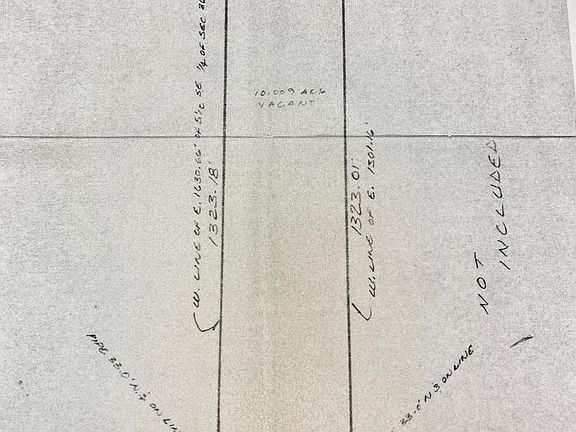 W. LINE OF E. 1630.66' OF S½ SE ¼ OF SEC 36
1323.18'
10.009 ACS
VACANT
1323.01'
W. LINE OF E. 1301.16'
NOT
INCLUDED
PIPE 33.0' N. & ON LINE
33.0' N & ON LINE